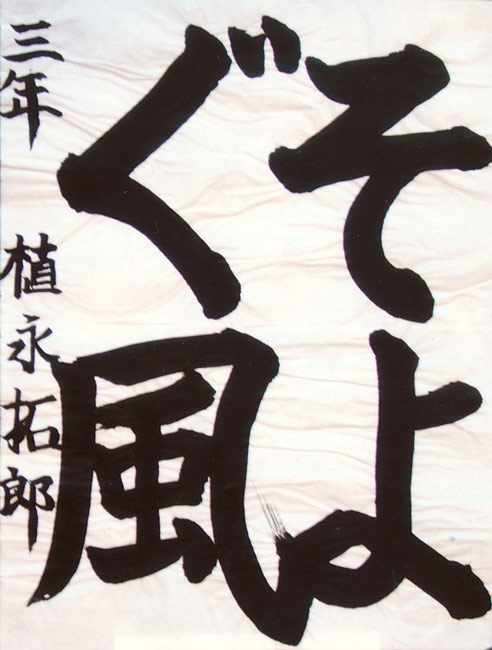 そよ
ぐ風
三年 植永拓郎